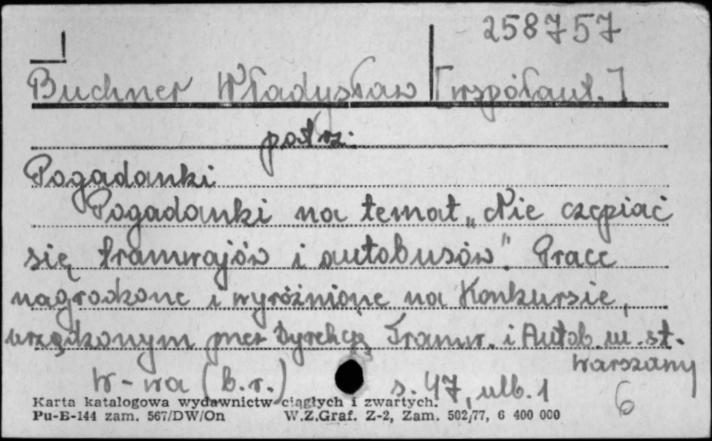 258757
Buchner Władysław [współaut.]
patrz:
Pogadanki
Pogadanki na temat „Nie czepiać
się tramwajów i autobusów". Prace
nagrodzone i wyróżnione na Konkursie,
urządzonym przez Dyrekcję Tramw. i Autob. m. st.
Warszawy
W-wa (b.r.) s. 47, ulb. 1
6
Karta katalogowa wydawnictw ciągłych i zwartych.
Pu-B-144 zam. 567/DW/On W.Z.Graf. Z-2, Zam. 502/77, 6 400 000